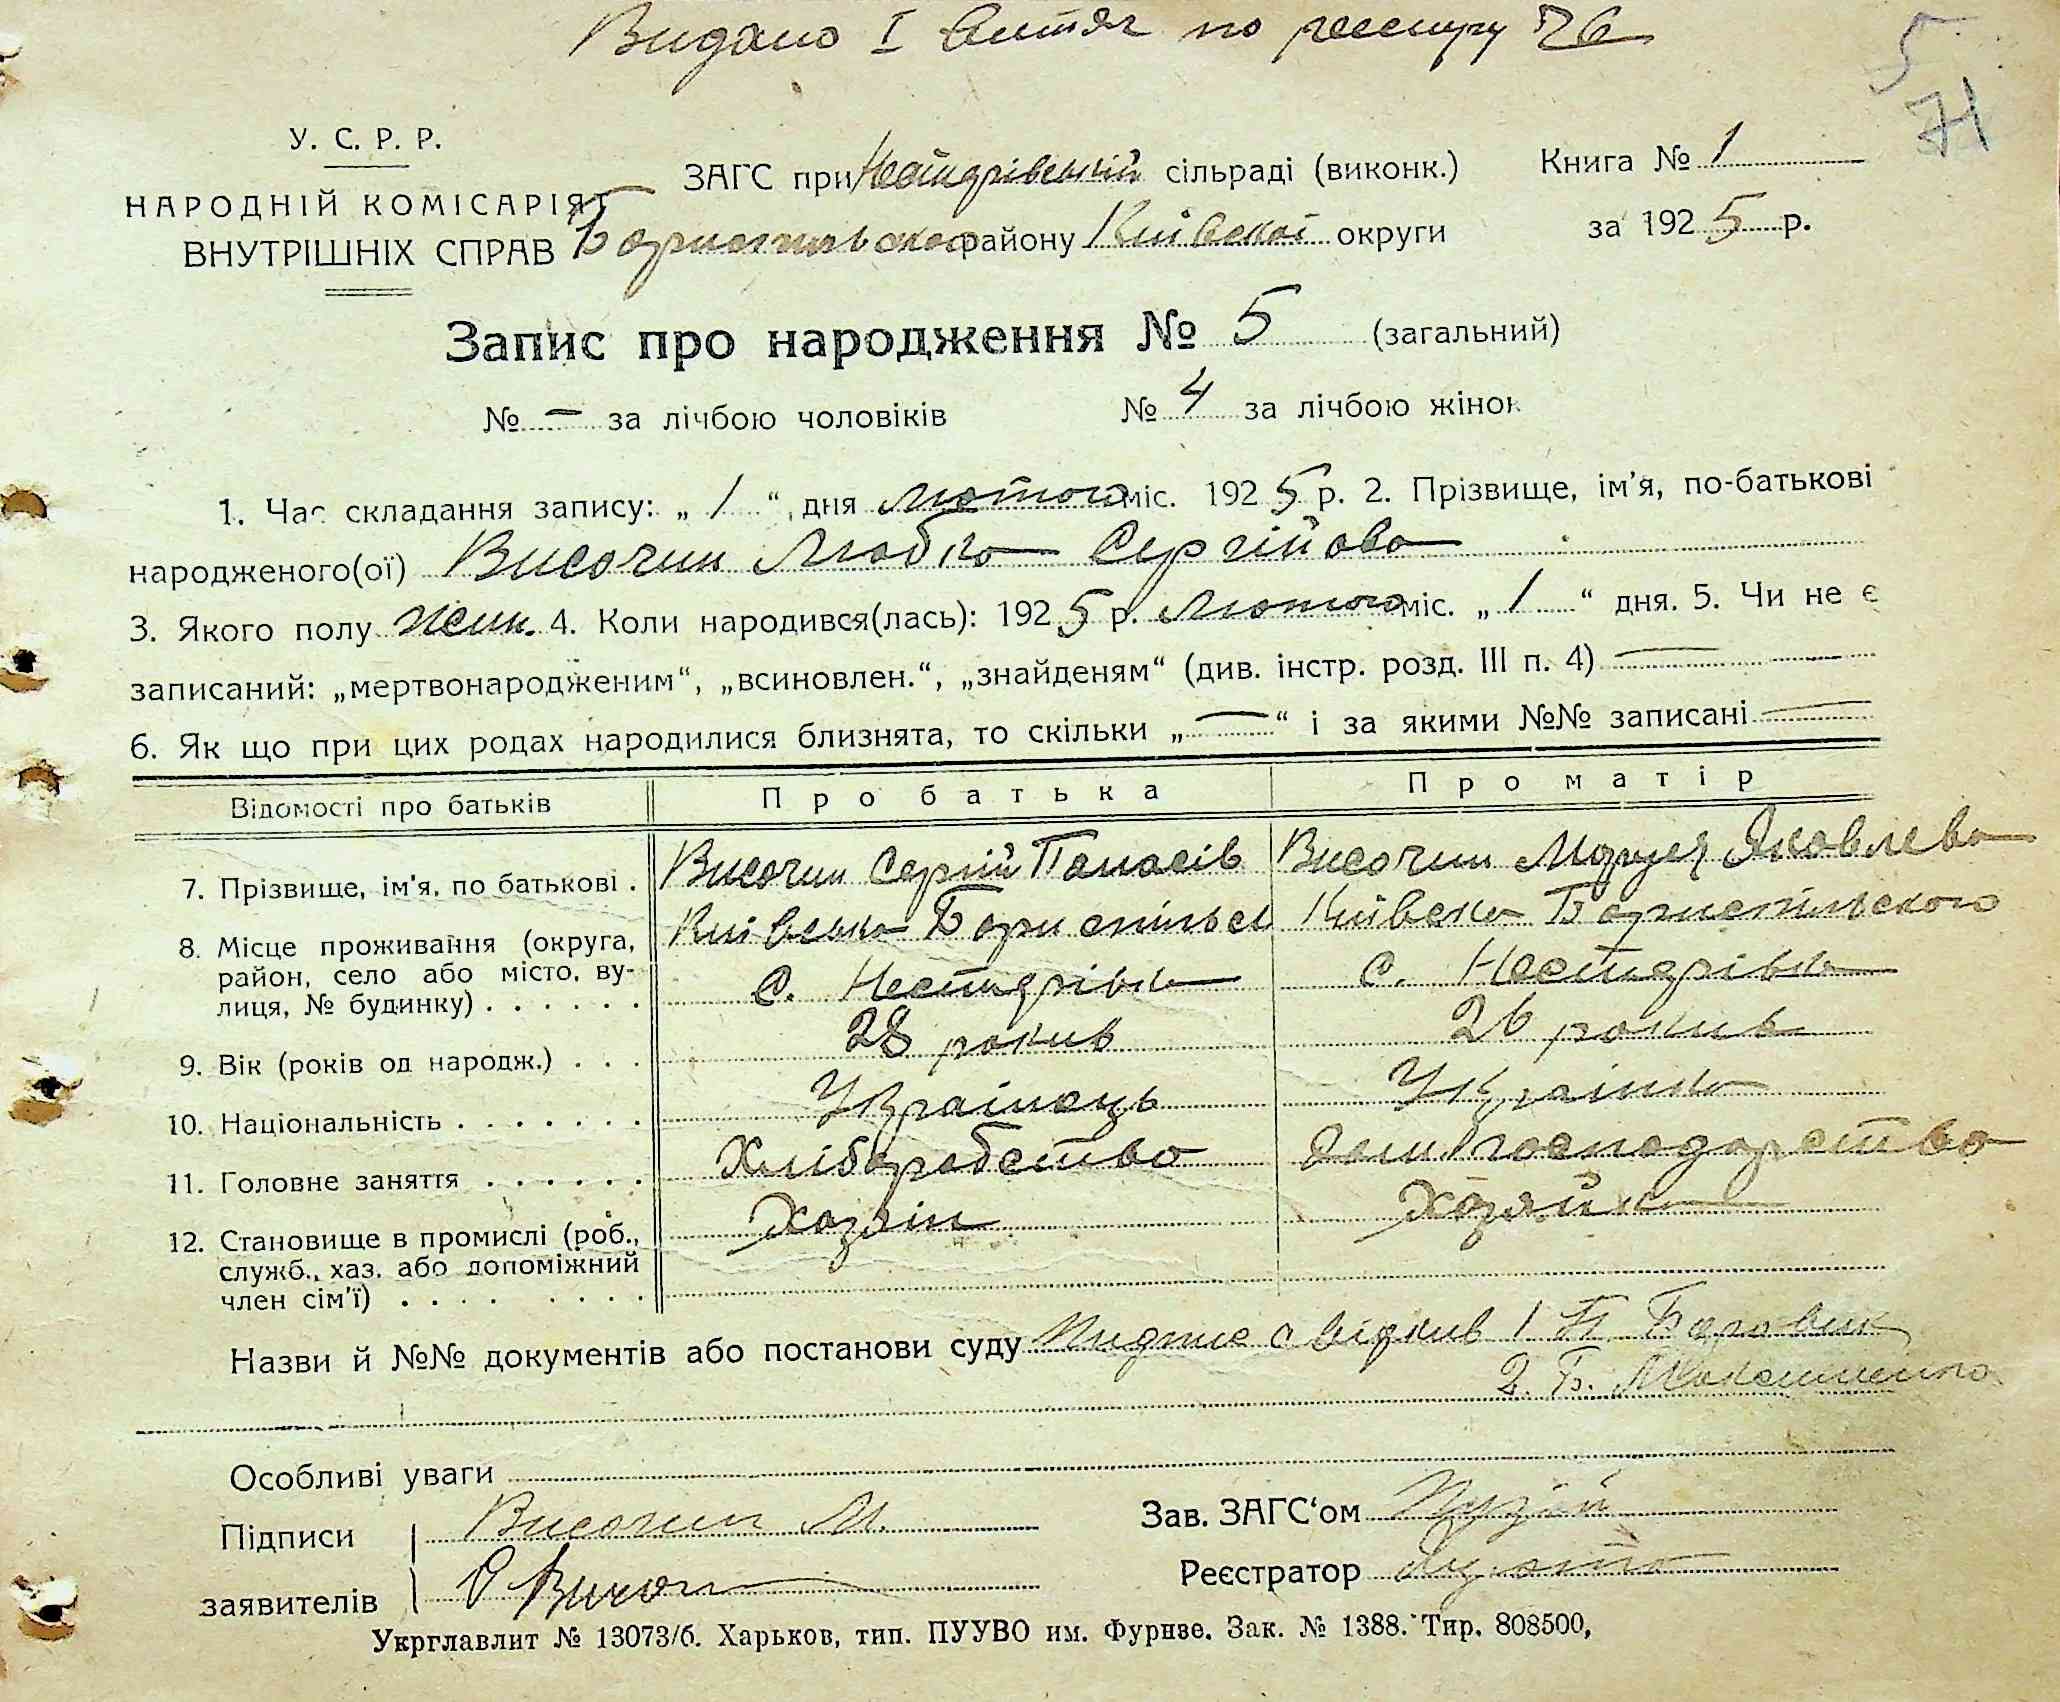 Видано І витяг по реєстру 26
5
71
У. С. Р. Р.
НАРОДНІЙ КОМІСАРІЯТ
ВНУТРІШНІХ СПРАВ
ЗАГС при Нестдрівській сільраді (виконк.)
Бориспільського району Київскої округи
Книга № 1
за 1925 р.
Запис про народження № 5 (загальний)
№ — за лічбою чоловіків № 4 за лічбою жінок
1. Час складання запису: „ 1 “ дня лютого міс. 1925 р. 2. Прізвище, ім'я, по-батькові
народженого(ої) Височин Любка Сергійова
3. Якого полу жін. 4. Коли народився(лась): 1925 р. Лютого міс. „ 1 “ дня. 5. Чи не є
записаний: „мертвонародженим“, „всиновлен.“, „знайденям“ (див. інстр. розд. III п. 4) —
6. Як що при цих родах народилися близнята, то скільки „ — “ і за якими №№ записані —
Відомості про батьків Про батька Про матір
7. Прізвище, ім'я, по батькові . Височин Сергій Панасів Височин Маруся Яковлева
8. Місце проживання (округа, Київська Бориспільск Київска Бориспільского
район, село або місто, ву- с. Нестдрівка с. Нестдрівка
лиця, № будинку) . . . . . .
9. Вік (років од народж.) . . . 28 рокив 26 рокив
10. Національність . . . . . . . Українець Українка
11. Головне заняття . . . . . . Хліборобство Дом. господарство
12. Становище в промислі (роб., Хазяїн Хозяйка
служб., хаз. або допоміжний
член сім'ї) . . . . . . . .
Назви й №№ документів або постанови суду Пидпис свідкив 1 П Боровик
2. Б.
Особливі уваги
Підписи Височин М.
заявителів
Зав. ЗАГС'ом Пузій
Реєстратор
Укрглавлит № 13073/б. Харьков, тип. ПУУВО им. Фурнве. Зак. № 1388. Тир. 808500,